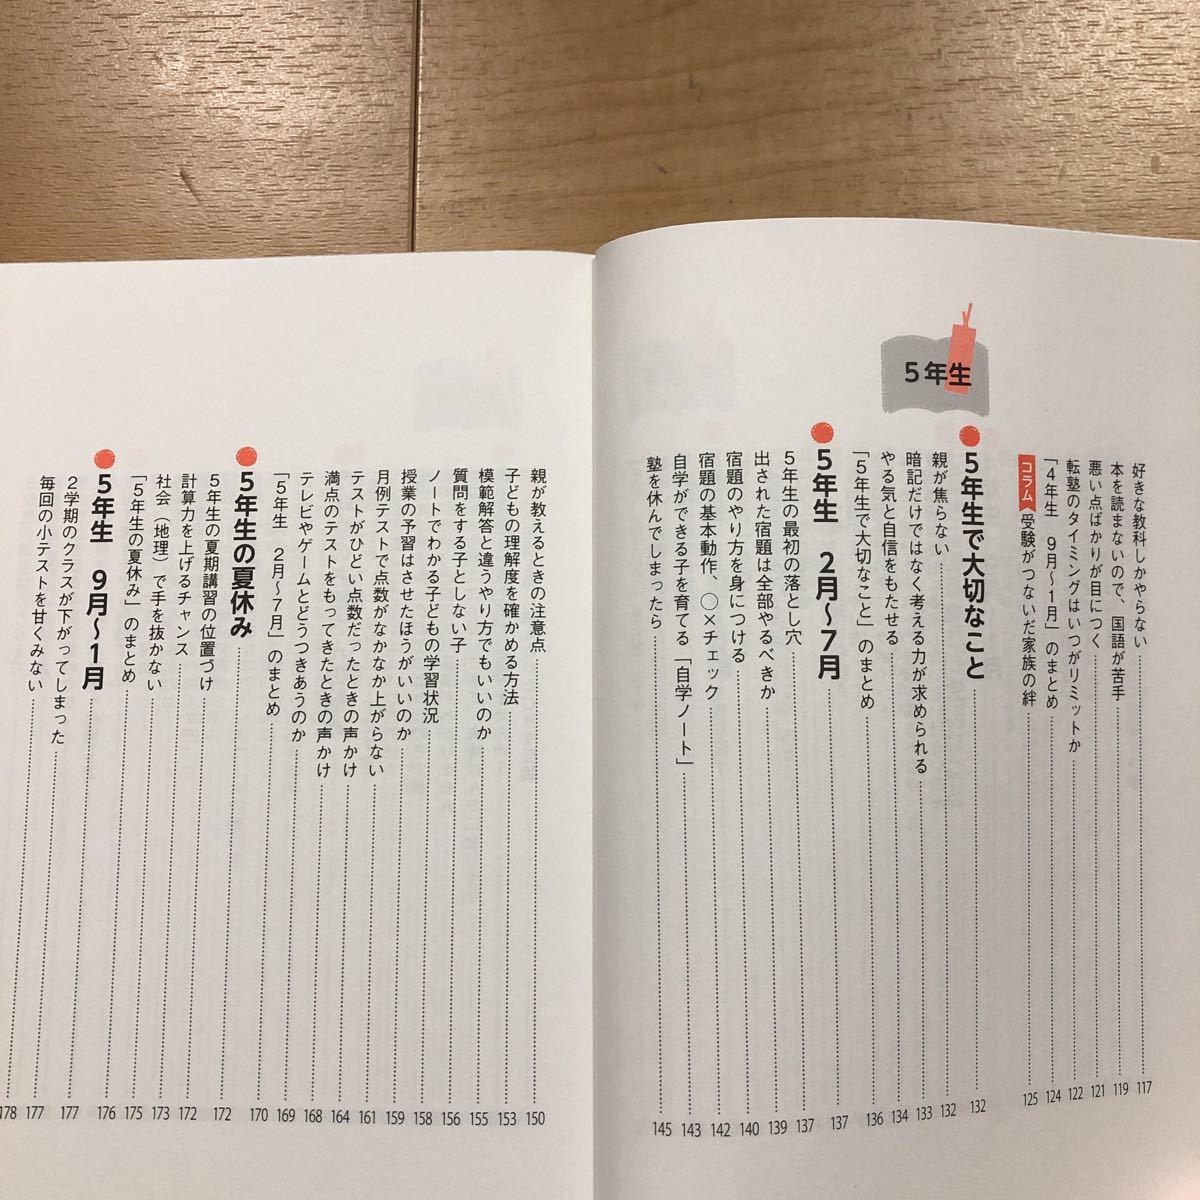 好きな教科しかやらない 117
本を読まないので、国語が苦手 119
悪い点ばかりが目につく 121
転塾のタイミングはいつがリミットか 122
「4年生 9月〜1月」のまとめ 124
コラム 受験がつないだ家族の絆 125
5年生
5年生で大切なこと 132
親が焦らない 132
暗記だけではなく考える力が求められる 133
やる気と自信をもたせる 134
「5年生で大切なこと」のまとめ 136
5年生 2月〜7月 137
5年生の最初の落とし穴 137
出された宿題は全部やるべきか 139
宿題のやり方を身につける 140
宿題の基本動作、○×チェック 142
自学ができる子を育てる「自学ノート」 143
塾を休んでしまったら 145
親が教えるときの注意点 150
子どもの理解度を確かめる方法 153
模範解答と違うやり方でもいいのか 156
質問をする子としない子
ノートでわかる子どもの学習状況 158
授業の予習はさせたほうがいいのか 159
月例テストで点数がなかなか上がらない 161
テストがひどい点数だったときの声かけ
満点のテストをもってきたときの声かけ 164
テレビやゲームとどうつきあうのか 168
「5年生 2月〜7月」のまとめ 169
5年生の夏休み 170
5年生の夏期講習の位置づけ 172
計算力を上げるチャンス 172
社会（地理）で手を抜かない 173
「5年生の夏休み」のまとめ 175
5年生 9月〜1月 176
2学期のクラスが下がってしまった 177
毎回の小テストを甘くみない 177
178